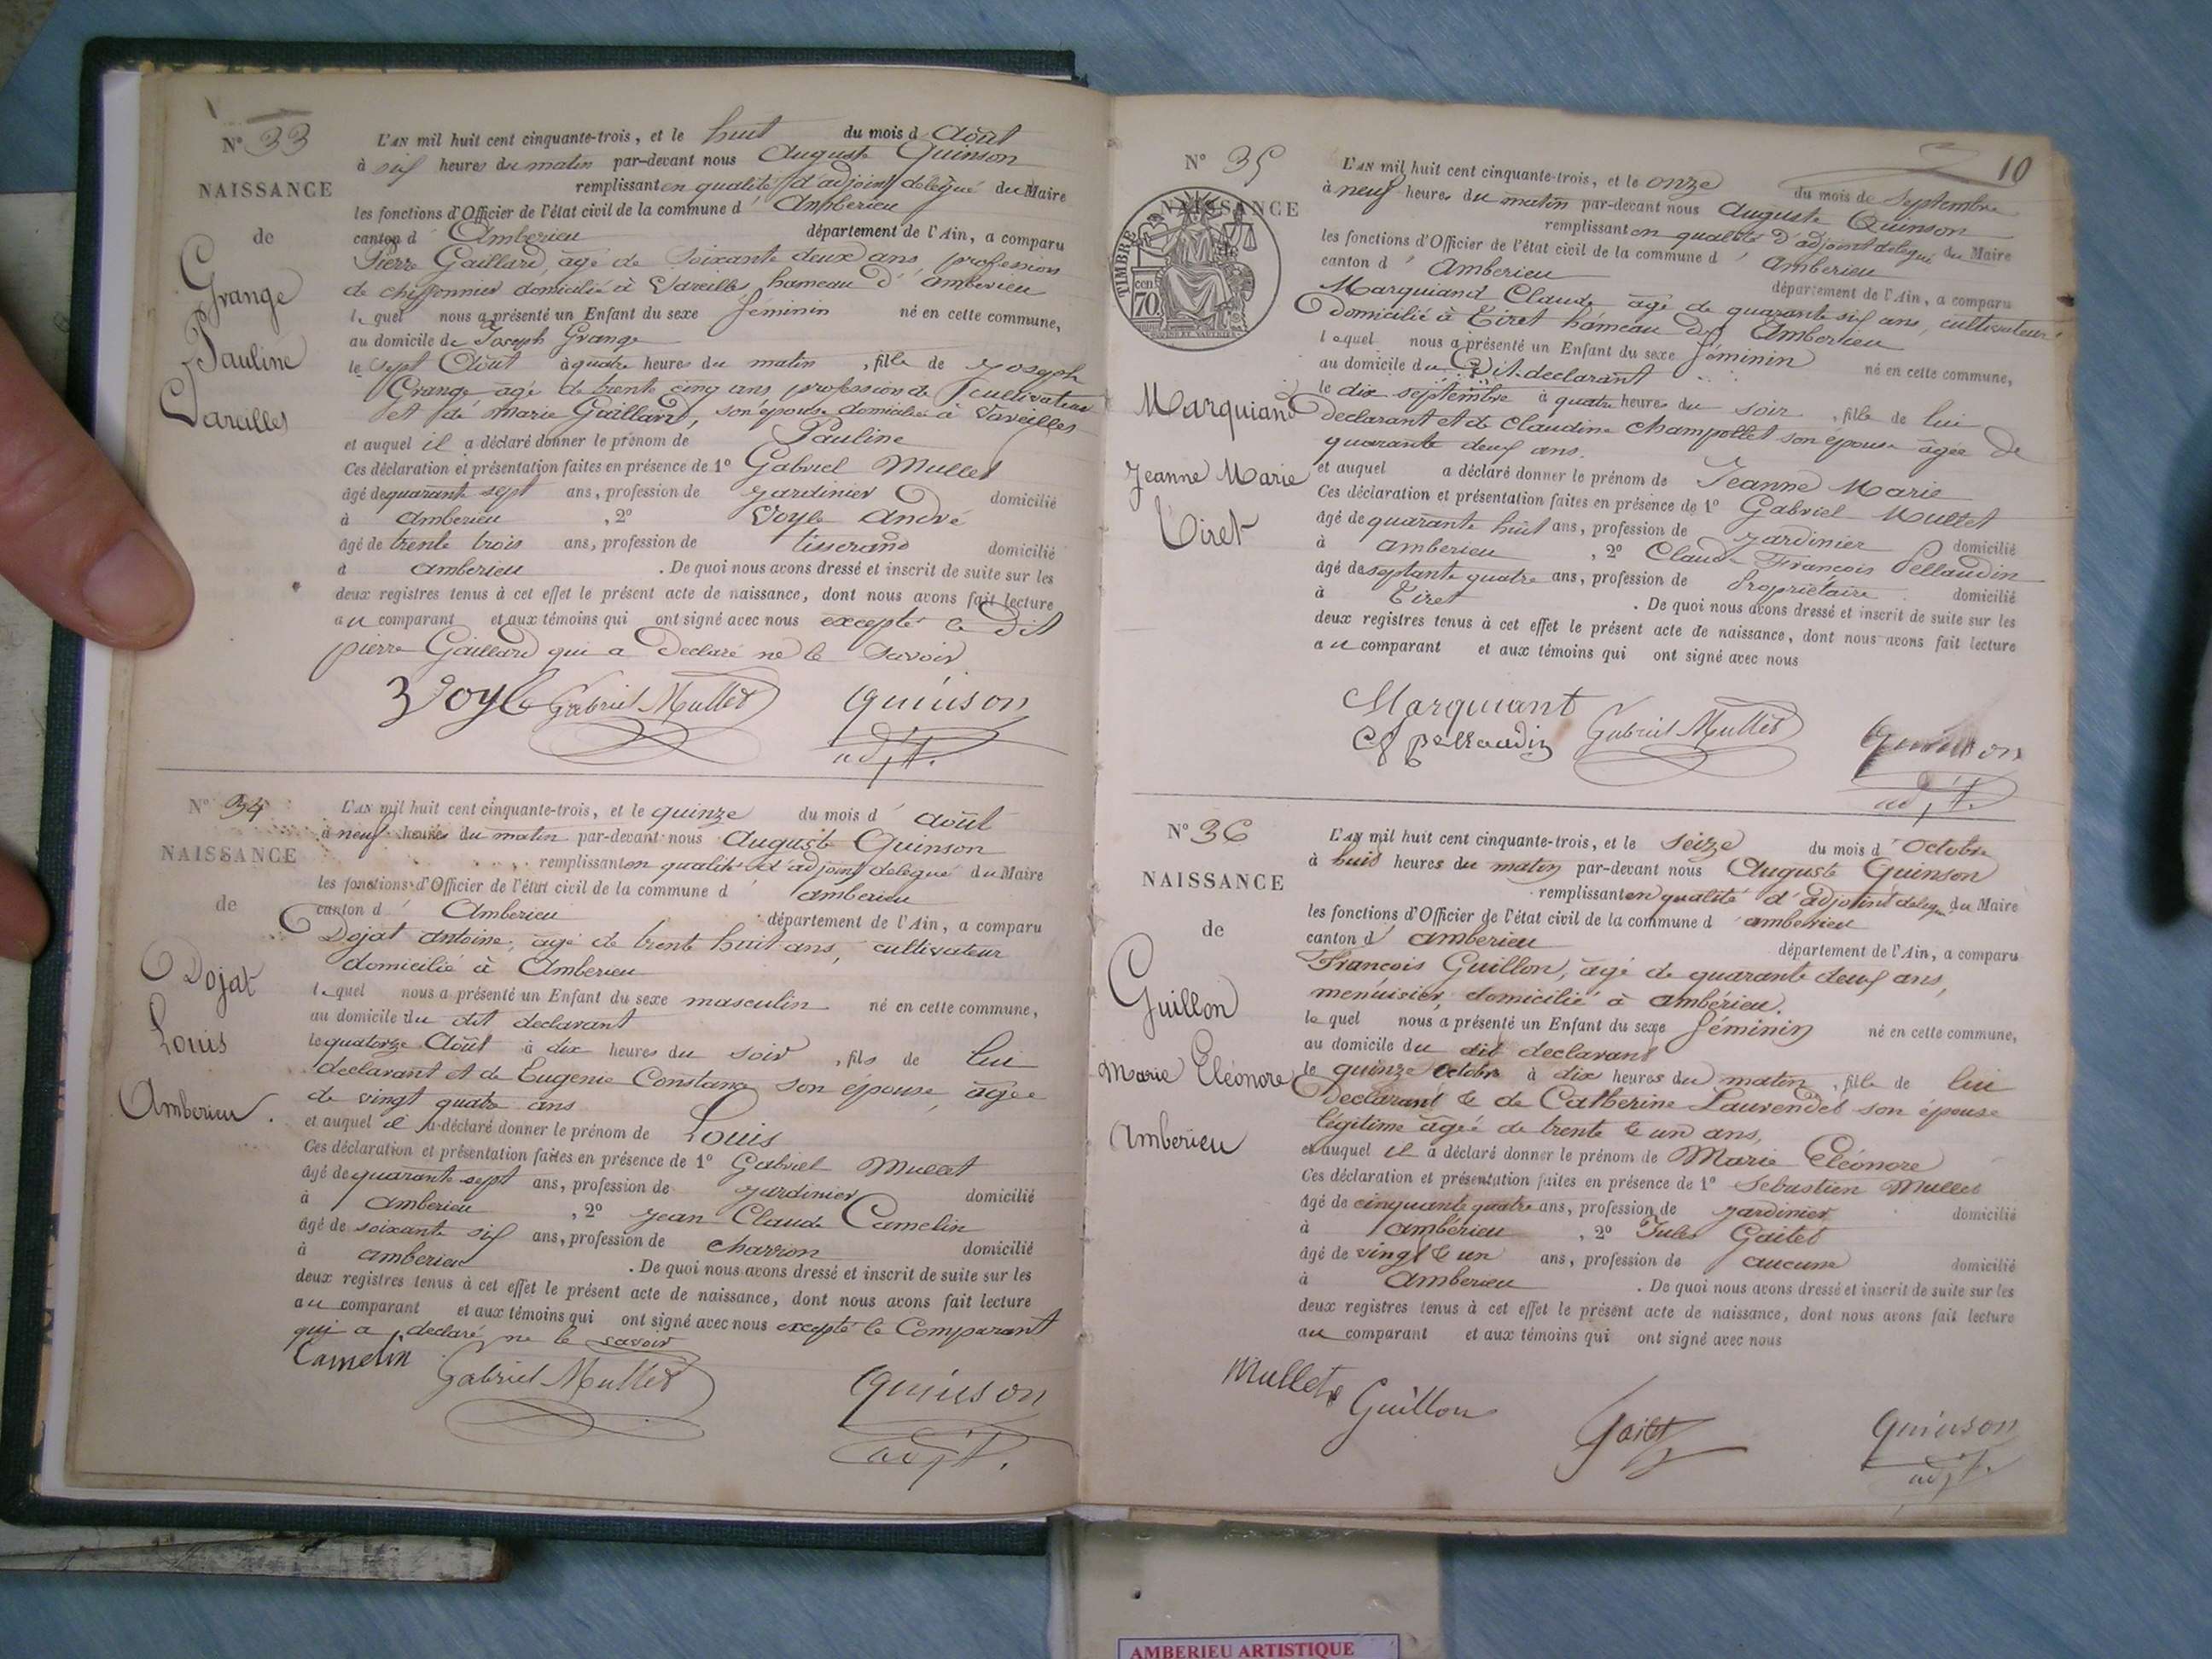 N° 33
NAISSANCE
de
Grange
Pauline
Vareilles
L'AN mil huit cent cinquante-trois, et le huit du mois d Août
à six heures du matin par-devant nous Auguste Quinson
remplissant en qualité d'adjoint delegué du Maire
les fonctions d'Officier de l'état civil de la commune d' Amberieu
canton d' Amberieu département de l'Ain, a comparu
Pierre Gaillard, agé de soixante deux ans, profession
de chiffonnier domicilié à Vareilles hameau d'amberieu
lequel nous a présenté un Enfant du sexe féminin né en cette commune,
au domicile de Joseph Grange
le sept Août à quatre heures du matin, fille de Joseph
Grange agé de trente cinq ans, profession de cultivateur
et de Marie Gaillard, son épouse domiciliés à Vareilles
et auquel il a déclaré donner le prénom de Pauline
Ces déclaration et présentation faites en présence de 1° Gabriel Mullet
âgé de quarante sept ans, profession de jardinier domicilié
à amberieu, 2° Voyle André
âgé de trente trois ans, profession de tisserand domicilié
à amberieu. De quoi nous avons dressé et inscrit de suite sur les
deux registres tenus à cet effet le présent acte de naissance, dont nous avons fait lecture
au comparant et aux témoins qui ont signé avec nous excepté le dit
pierre Gaillard qui a declaré ne le savoir
Voyle Gabriel Mullet quinson
adjt.
N° 34
NAISSANCE
de
Dojat
Louis
Amberieu.
L'AN mil huit cent cinquante-trois, et le quinze du mois d' août
à neuf heures du matin par-devant nous Auguste Quinson
remplissant en qualité d'adjoint delegué du Maire
les fonctions d'Officier de l'état civil de la commune d' amberieu
canton d' Amberieu département de l'Ain, a comparu
Dojat antoine, agé de trente huit ans, cultivateur
domicilié à Amberieu
lequel nous a présenté un Enfant du sexe masculin né en cette commune,
au domicile du dit declarant
le quatorze Août à dix heures du soir, fils de lui
declarant et de Eugenie Constance son épouse, agée
de vingt quatre ans
et auquel il a déclaré donner le prénom de Louis
Ces déclaration et présentation faites en présence de 1° Gabriel Mullet
âgé de quarante sept ans, profession de jardinier domicilié
à amberieu, 2° Jean Claude Camelin
âgé de soixante six ans, profession de charron domicilié
à amberieu. De quoi nous avons dressé et inscrit de suite sur les
deux registres tenus à cet effet le présent acte de naissance, dont nous avons fait lecture
au comparant et aux témoins qui ont signé avec nous excepté le Comparant
qui a declaré ne le savoir
Camelin Gabriel Mullet quinson
adjt.
10
N° 35
NAISSANCE
TIMBRE
70
Marquiand
Jeanne Marie
Tiret
L'AN mil huit cent cinquante-trois, et le onze du mois de Septembre
à neuf heures du matin par-devant nous Auguste Quinson
remplissant en qualité d'adjoint delegué du Maire
les fonctions d'Officier de l'état civil de la commune d' Amberieu
canton d' Amberieu département de l'Ain, a comparu
Marquiand Claude agé de quarante six ans, cultivateur
domicilié à Tiret hameau d' Amberieu
lequel nous a présenté un Enfant du sexe féminin né en cette commune,
au domicile du Dit declarant
le dix septembre à quatre heures du soir, fille de lui
declarant et de Claudine Champollet son épouse agée de
quarante deux ans.
et auquel a déclaré donner le prénom de Jeanne Marie
Ces déclaration et présentation faites en présence de 1° Gabriel Mullet
âgé de quarante huit ans, profession de jardinier domicilié
à amberieu, 2° Claude François Pellaudin
âgé de septante quatre ans, profession de Propriétaire domicilié
à Tiret. De quoi nous avons dressé et inscrit de suite sur les
deux registres tenus à cet effet le présent acte de naissance, dont nous avons fait lecture
au comparant et aux témoins qui ont signé avec nous
Marquiant Gabriel Mullet quinson
adjt.
N° 36
NAISSANCE
de
Guillon
Marie Eléonore
Amberieu
L'AN mil huit cent cinquante-trois, et le seize du mois d' Octobre
à huit heures du matin par-devant nous Auguste Quinson
remplissant en qualité d'adjoint delegué du Maire
les fonctions d'Officier de l'état civil de la commune d' amberieu
canton d' amberieu département de l'Ain, a comparu
François Guillon, agé de quarante deux ans,
menuisier domicilié à ambérieu.
lequel nous a présenté un Enfant du sexe féminin né en cette commune,
au domicile du dit declarant
le quinze Octobre à dix heures du matin, fille de lui
Declarant & de Catherine Laurendet son épouse
légitime agée de trente & un ans,
et auquel il a déclaré donner le prénom de Marie Eléonore
Ces déclaration et présentation faites en présence de 1° Sebastien Mullet
âgé de cinquante quatre ans, profession de jardinier domicilié
à ambérieu, 2° Jules Gaitet
âgé de vingt & un ans, profession de aucune domicilié
à Amberieu. De quoi nous avons dressé et inscrit de suite sur les
deux registres tenus à cet effet le présent acte de naissance, dont nous avons fait lecture
au comparant et aux témoins qui ont signé avec nous
Mullet Guillon Gaitet quinson
adjt.
AMBERIEU ARTISTIQUE